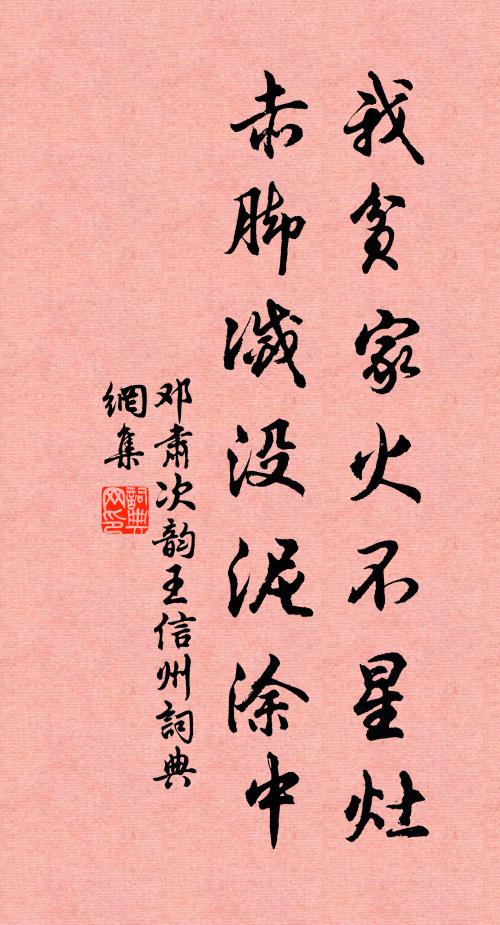 我贫家火不星灶
赤脚灭没泥涂中
邓肃次韵王信州詞典
網集
詞典
网印